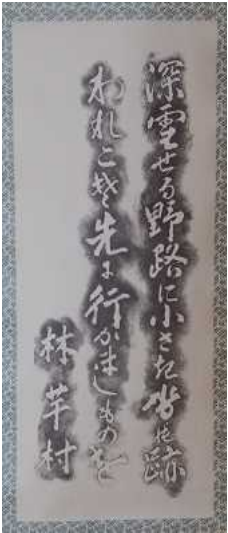 深雪せる野路に小さき沓の跡
われこそ先に行かましものを
林芋村